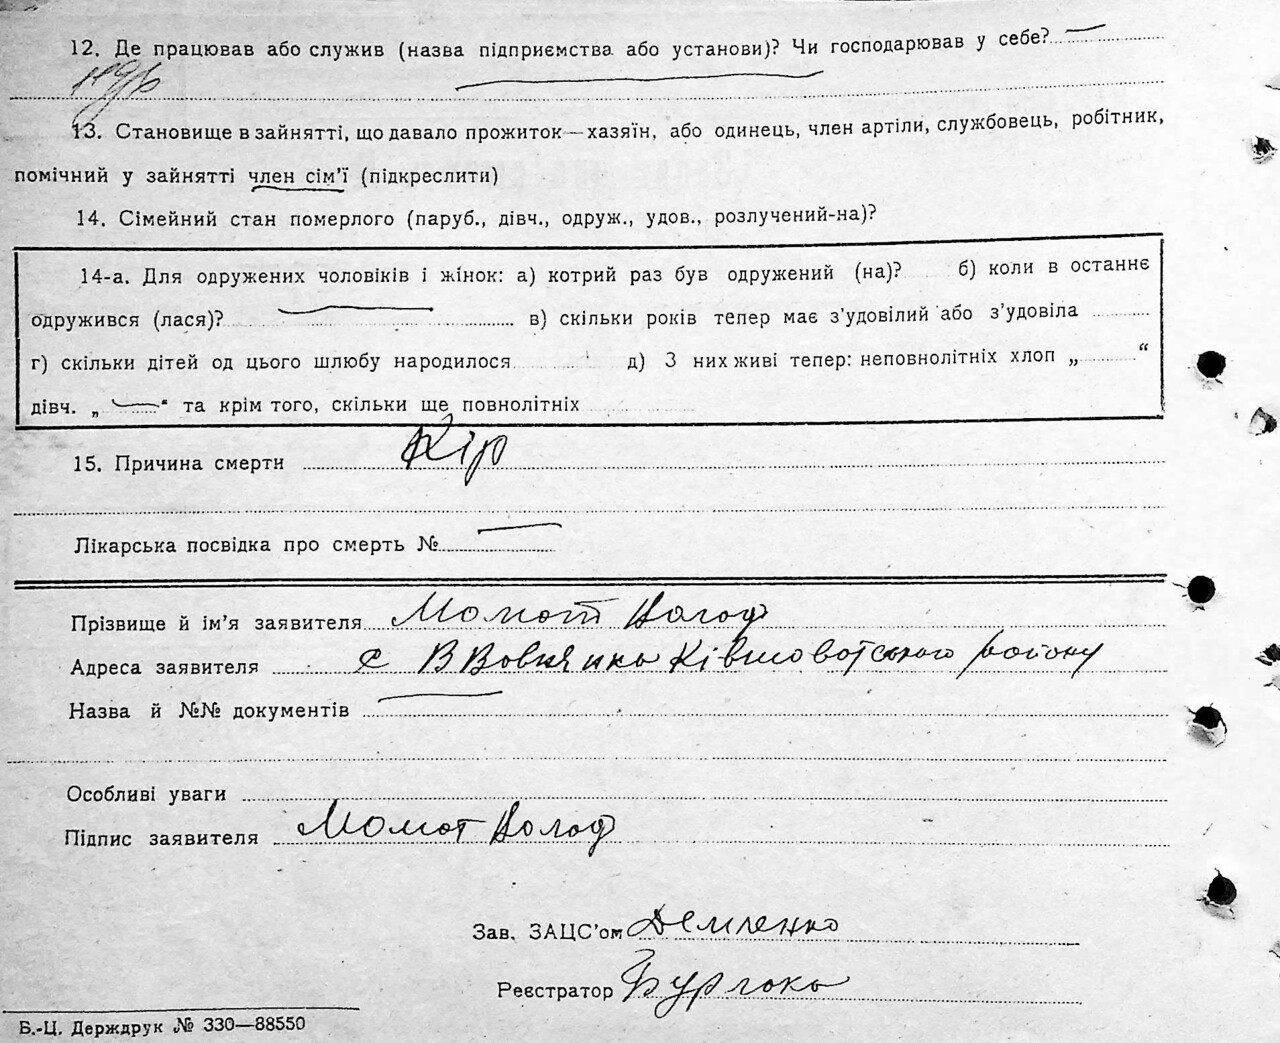 12. Де працював або служив (назва підприємства або установи)? Чи господарював у себе? —
13. Становище в зайнятті, що давало прожиток—хазяїн, або одинець, член артіли, службовець, робітник,
помічний у зайнятті член сім'ї (підкреслити)
14. Сімейний стан померлого (паруб., дівч., одруж., удов., розлучений-на)?
14-а. Для одружених чоловіків і жінок: а) котрий раз був одружений (на)? б) коли в останнє
одружився (лася)? в) скільки років тепер має з'удовілий або з'удовіла
г) скільки дітей од цього шлюбу народилося д) З них живі тепер: неповнолітніх хлоп „ “
дівч. „ — “ та крім того, скільки ще повнолітніх
15. Причина смерти Кір
Лікарська посвідка про смерть № —
Прізвище й ім'я заявителя Момот Волод
Адреса заявителя с В Вовнянка Ківшоватського району
Назва й №№ документів —
Особливі уваги
Підпис заявителя Момот Волод
Зав. ЗАЦС'ом
Реєстратор
Б.-Ц. Держдрук № 330—88550